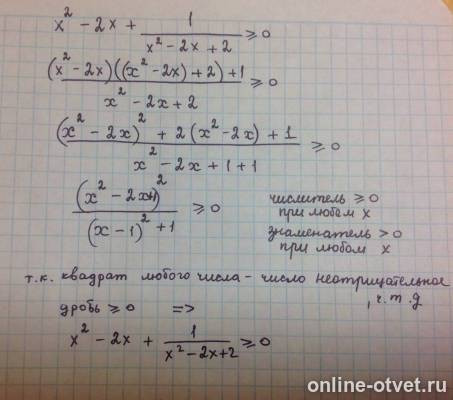 x² - 2x + 1/(x² - 2x + 2) ≥ 0
((x² - 2x)((x² - 2x) + 2) + 1)/(x² - 2x + 2) ≥ 0
((x² - 2x)² + 2(x² - 2x) + 1)/(x² - 2x + 1 + 1) ≥ 0
(x² - 2x+1)²/((x - 1)² + 1) ≥ 0
числитель ≥ 0
при любом x
знаменатель > 0
при любом x
т.к. квадрат любого числа - число неотрицательное
, ч.т.д
дробь ≥ 0 =>
x² - 2x + 1/(x² - 2x + 2) ≥ 0
online-otvet.ru